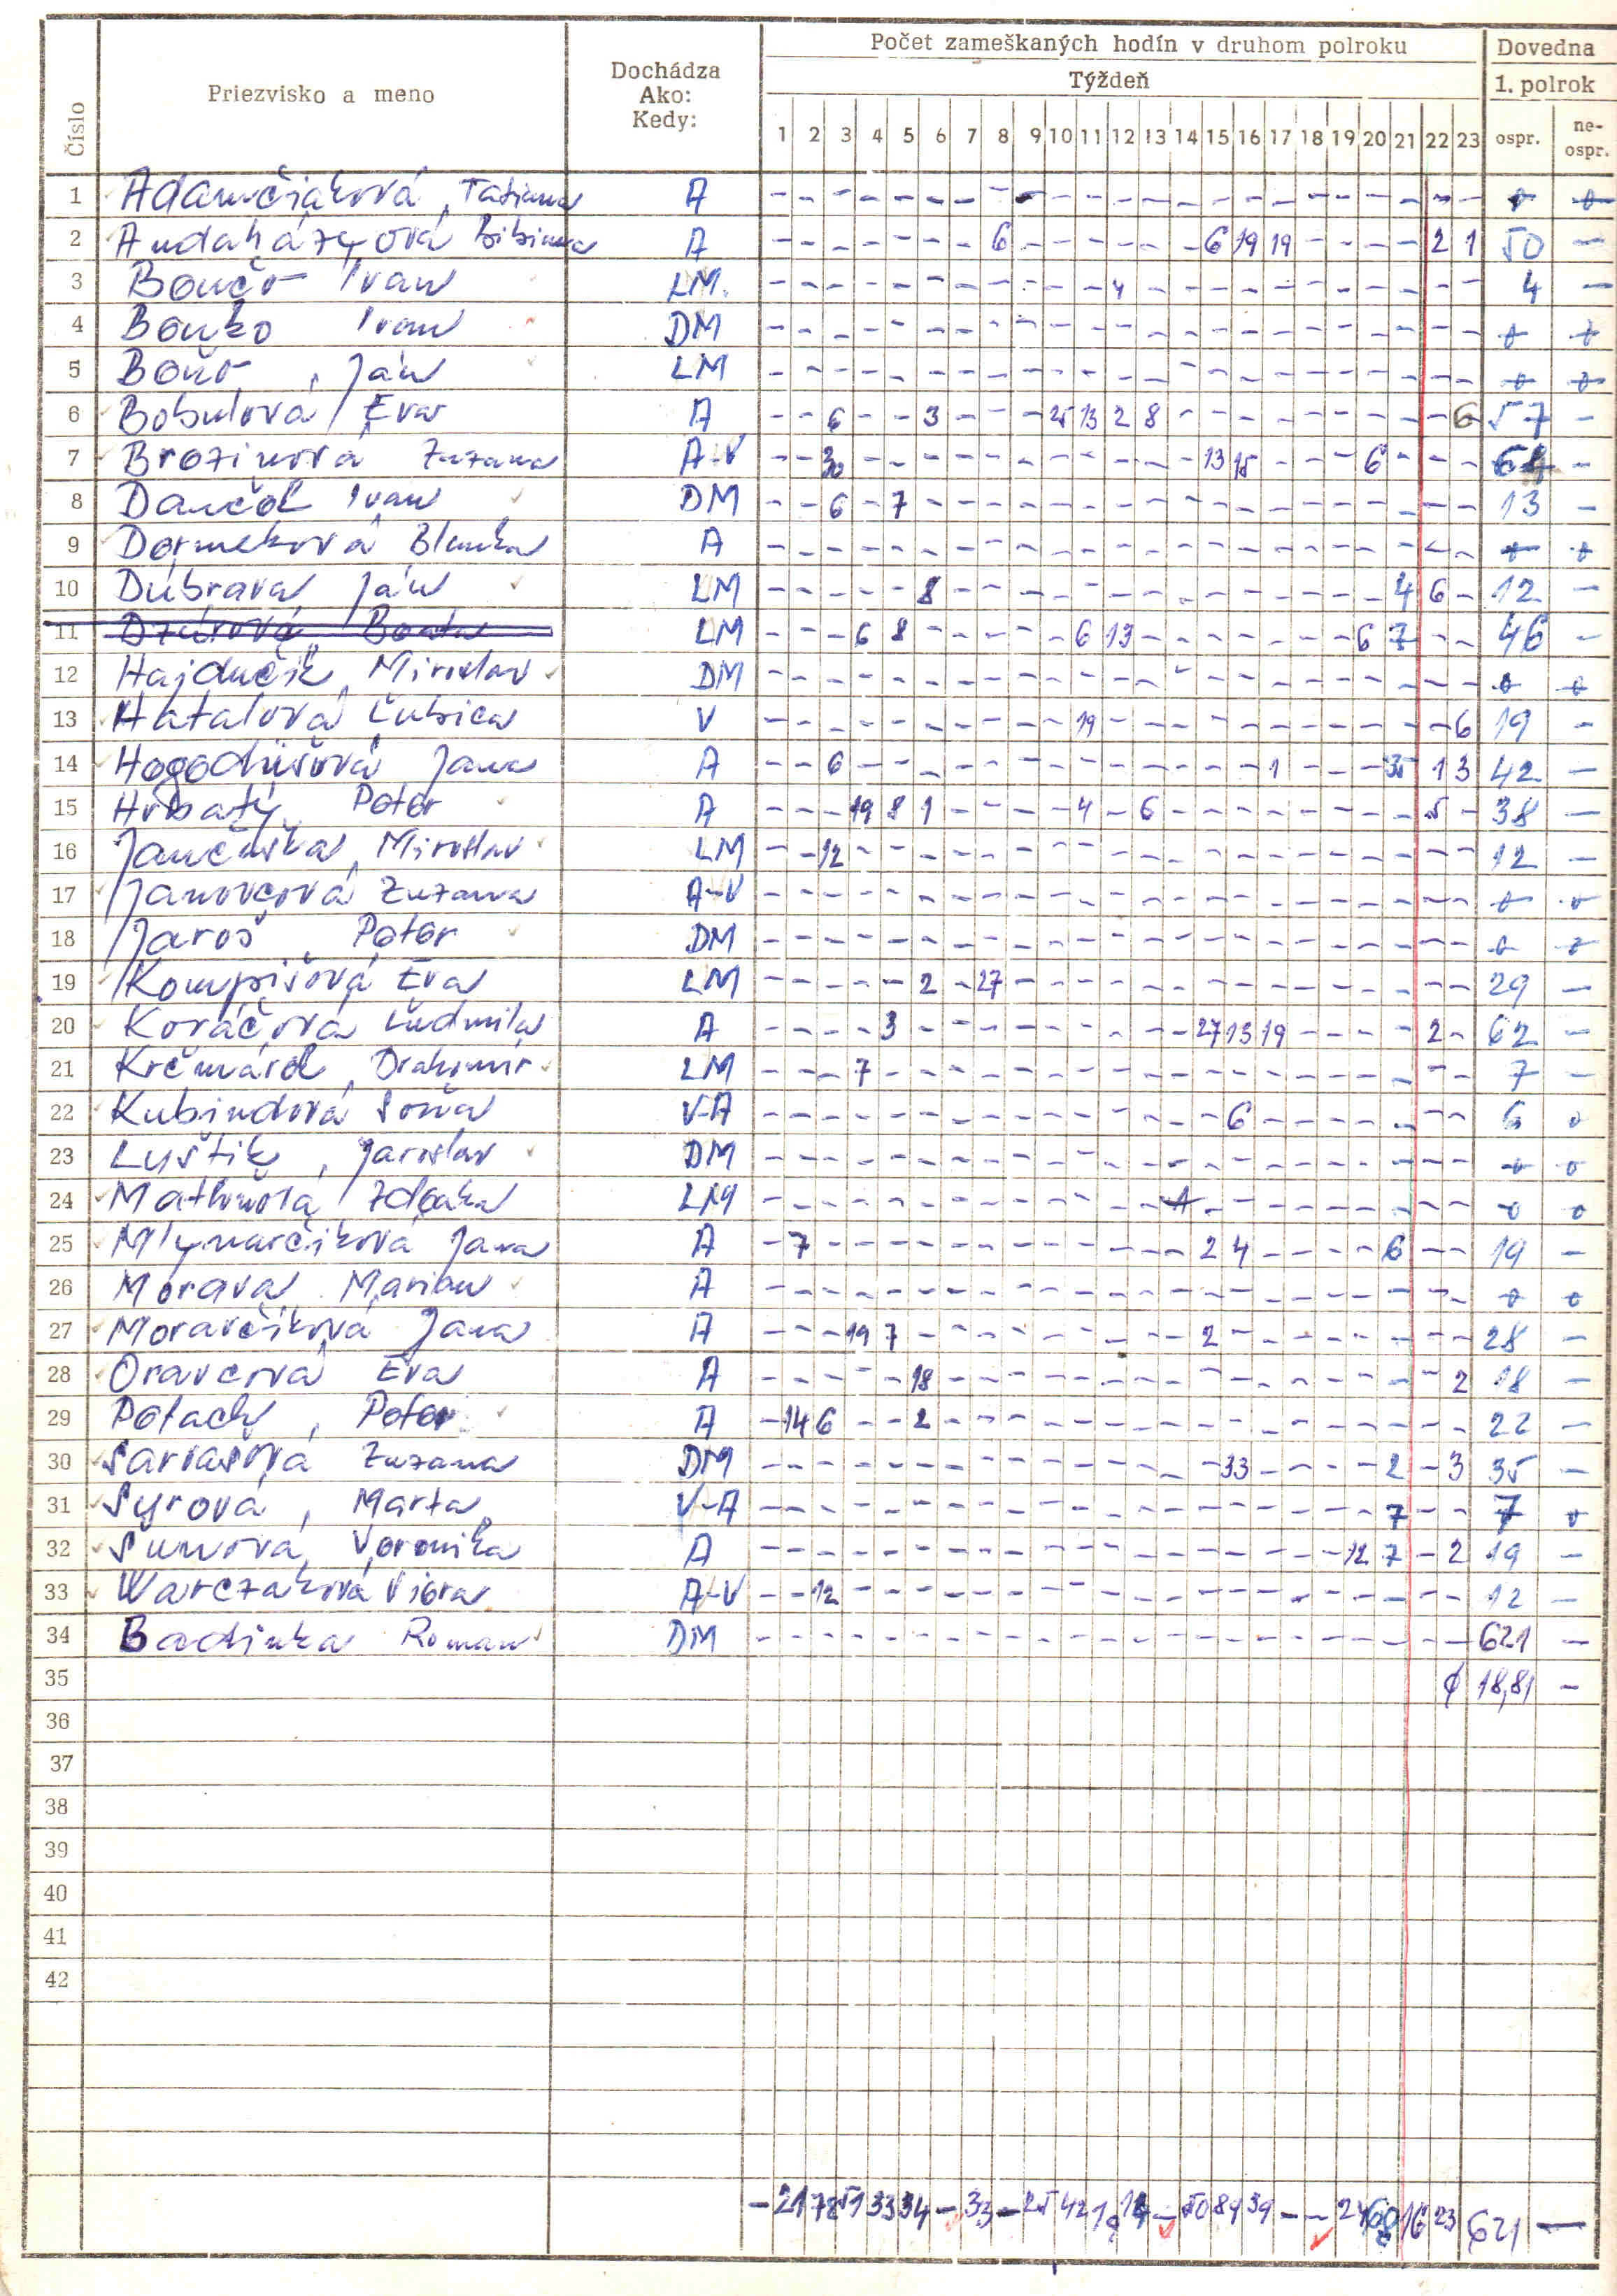 Počet zameškaných hodín v druhom polroku Dovedna
Číslo Priezvisko a meno Dochádza Ako: Kedy: Týždeň 1. polrok
1 2 3 4 5 6 7 8 9 10 11 12 13 14 15 16 17 18 19 20 21 22 23 ospr. ne-ospr.
1 Adamčiaková, Tatiana A - - - - - - - - - - - - - - - - - - - - - - -
2 Andaházyová Bibiana A - - - - - - - 6 - - - - - - 6 19 19 - - - - 2 1 50 -
3 Bončo Ivan LM. - - - - - - - - - - - 4 - - - - - - - - - - - 4 -
4 Bonko Ivan DM - - - - - - - - - - - - - - - - - - - - - - -
5 Boňo, Ján LM - - - - - - - - - - - - - - - - - - - - - - -
6 Bobulová Eva A - - 6 - - 3 - - - 25 13 2 8 - - - - - - - - - 6 57 -
7 Brozinová Zuzana A-V - - 30 - - - - - - - - - - - 13 15 - - - 6 - - - 64 -
8 Dančok Ivan DM - - 6 - 7 - - - - - - - - - - - - - - - - - - 13 -
9 Dormeková Blanka A - - - - - - - - - - - - - - - - - - - - - - -
10 Dúbrava Ján LM - - - - - 8 - - - - - - - - - - - - - - 4 6 - 12 -
11 Dzúrová Beata LM - - - 6 8 - - - - - 6 13 - - - - - - - 6 7 - - 46 -
12 Hajdučík, Miroslav DM - - - - - - - - - - - - - - - - - - - - - - -
13 Hatalová Ľubica V - - - - - - - - - - 19 - - - - - - - - - - - 6 19 -
14 Hogodhišová Jana A - - 6 - - - - - - - - - - - - - 1 - - - 35 1 3 42 -
15 Hrbatý Peter A - - - 19 8 1 - - - - 4 - 6 - - - - - - - - 5 - 38 -
16 Jančuška, Miroslav LM - - 12 - - - - - - - - - - - - - - - - - - - - 12 -
17 Janovcová Zuzana A-V - - - - - - - - - - - - - - - - - - - - - - -
18 Jaroš, Peter DM - - - - - - - - - - - - - - - - - - - - - - -
19 Kompišová Eva LM - - - - - 2 - 27 - - - - - - - - - - - - - - - 29 -
20 Kováčová Ľudmila A - - - - 3 - - - - - - - - - 27 13 19 - - - - 2 - 62 -
21 Krčmárek, Drahomír LM - - - 7 - - - - - - - - - - - - - - - - - - - 7 -
22 Kubindová Soňa V-A - - - - - - - - - - - - - - - 6 - - - - - - - 6 0
23 Luštík, Jaroslav DM - - - - - - - - - - - - - - - - - - - - - - - 0 0
24 Zdenka LM - - - - - - - - - - - - - - - - - - - - - - 0 0
25 Mlynarčíková Jana A - 7 - - - - - - - - - - - - 2 4 - - - - 6 - - 19 -
26 Morava Marian A - - - - - - - - - - - - - - - - - - - - - - - 0 0
27 Moravčíková Jana A - - - 19 7 - - - - - - - - - 2 - - - - - - - - 28 -
28 Oravcová Eva A - - - - - 18 - - - - - - - - - - - - - - - - 2 18 -
29 Potach, Peter A - 14 6 - - 2 - - - - - - - - - - - - - - - - - 22 -
30 Sarvašová Zuzana DM - - - - - - - - - - - - - - - 33 - - - - 2 - 3 35 -
31 Syrová, Marta V-A - - - - - - - - - - - - - - - - - - - - 7 - - 7 0
32 Šunová, Veronika A - - - - - - - - - - - - - - - - - - 12 7 - 2 19 -
33 Warczaková Viera A-V - - 12 - - - - - - - - - - - - - - - - - - - - 12 -
34 Badinka Roman DM - - - - - - - - - - - - - - - - - - - - - - - 621 -
35 ϕ 18,81 -
36
37
38
39
40
41
42
- 21 78 51 33 34 - 33 - 25 42 - 50 89 39 - - 24 16 23 621 -